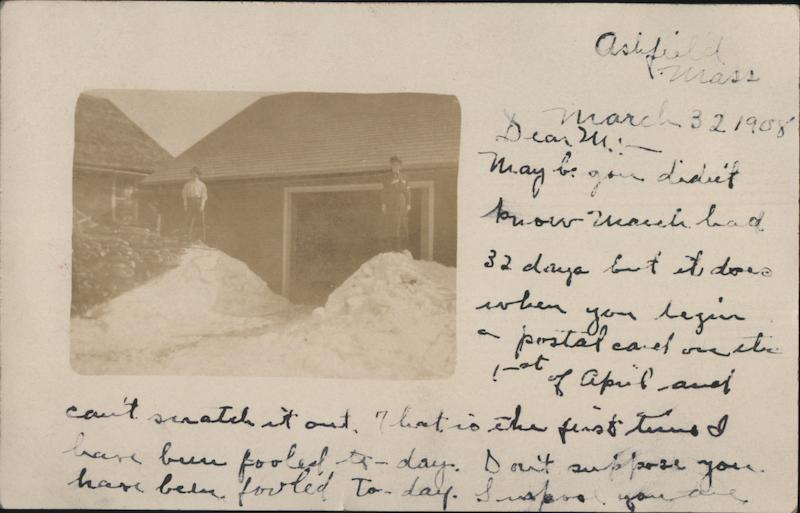 Ashfield
Mass
March 32 1908
Dear M:—
May be you didn't
know March had
32 days but it does
when you begin
a postal card on the
1st of April and
can't scratch it out. That is the first time I
have been fooled to-day. Don't suppose you
have been fooled to-day. Suppose you are